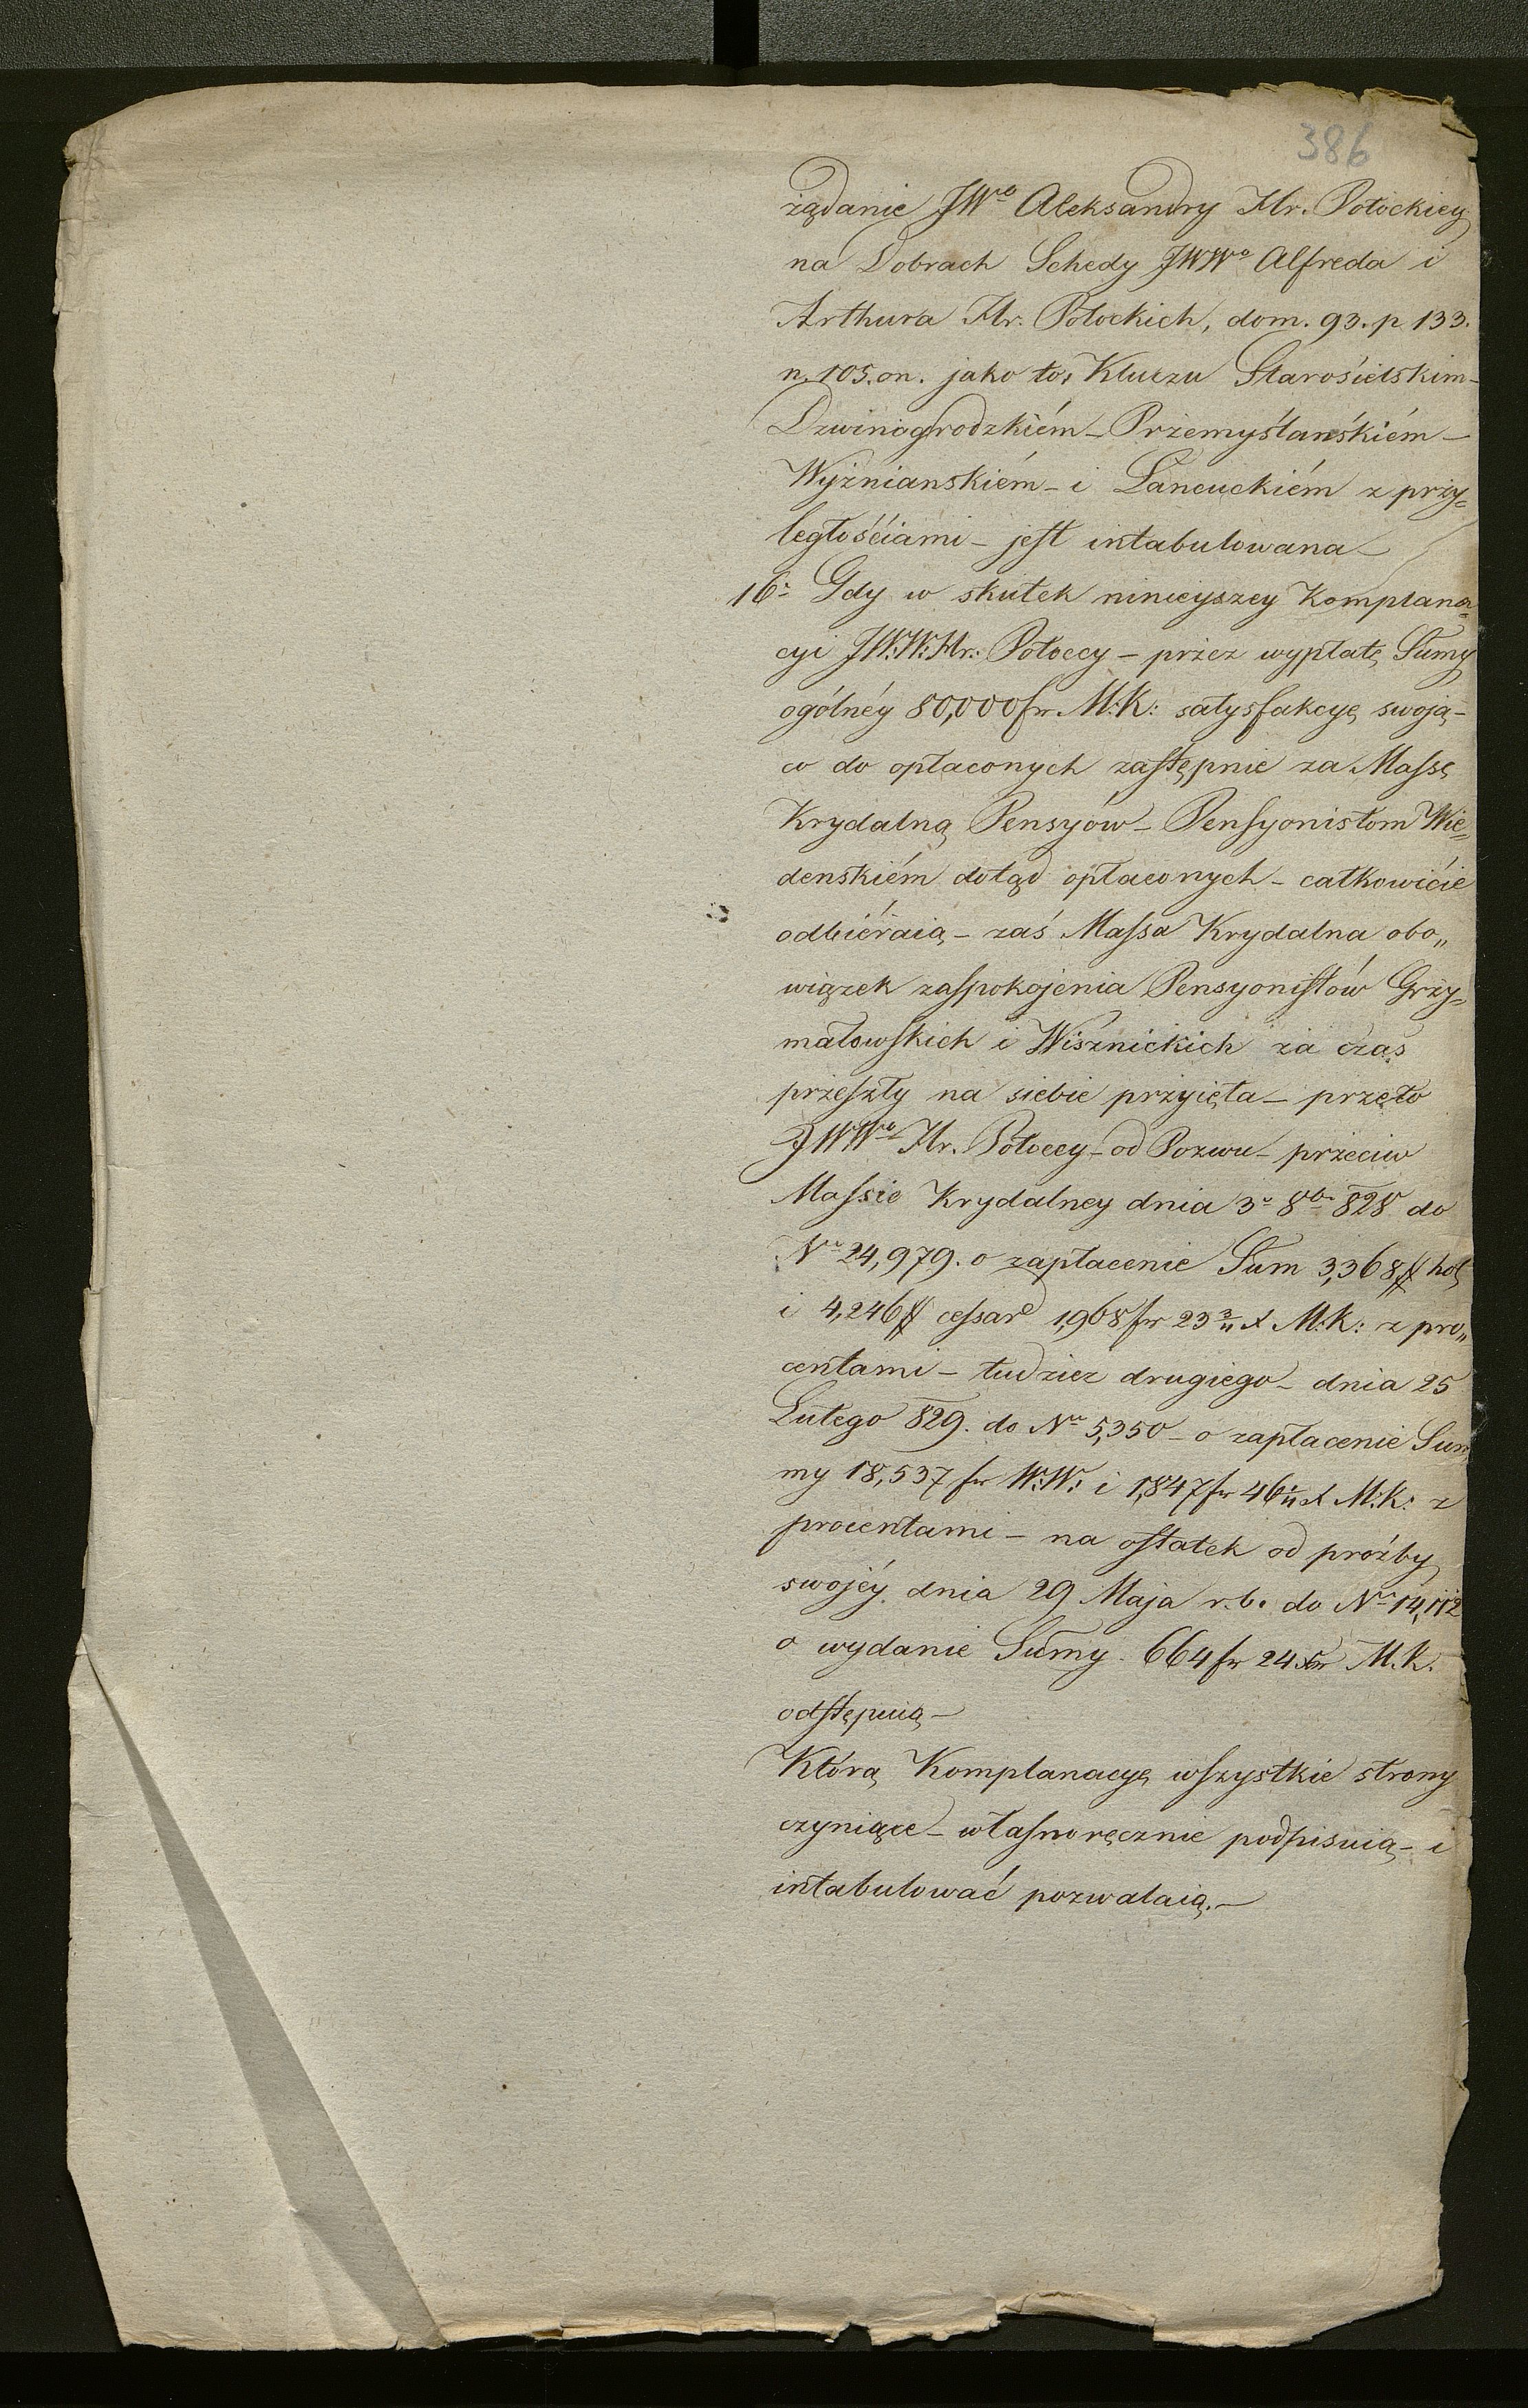 386
żądanie JWo Aleksandry Hr. Potockiey
na Dobrach Schedy JWWo Alfreda i
Arthura Hr. Potockich, dom. 93. p 133.
n. 105. on. jako to, Kluczu Starosielskim -
Dzwinogrodzkiém - Przemyślańskiém -
Wyżnianskiém - i Łancuckiém z przy=
ległościami - jest intabulowana -
16o Gdy w skutek ninieyszey Komplana=
cyi JW:W: Hr: Potoccy - przez wypłatę Sumy
ogólnéy 80,000 fr M:K: satysfakcyę swoją -
co do opłaconych zastępnie za Massę
Krydalną Pensyów - Pensyonistom Wie=
denskiém dotąd opłaconych - całkowicie
odbiéraią - zaś Massa Krydalna obo„
wiązek zaspokojenia Pensyonistów Grzy=
małowskich i Wisznickich za czas
przeszły na siebie przyięła - przeto
JWWo Hr. Potoccy - od Pozwu - przeciw
Massie Krydalney dnia 3o 8br 828 do
Nru 24,979. o zapłacenie Sum 3,368 ff hol
i 4,246 ff cessar 1,968 fr 23 3/4 x M:K: z pro„
centami - tudzież drugiego - dnia 25
Lutego 829. do Nru 5,350 - o zapłacenie Sum
my 18,537 fr W:W: i 1,847 fr 46 x M:K: z
procentami - na ostatek od proźby
swojéy dnia 29 Maja r. b. do Nru 14,112
o wydanie Sumy 664 fr 24 xr M.K.
odstępuią -
Którą Komplanacyę wszystkie strony
czyniące - własnoręcznie podpisuią - i
intabulować pozwalaią. -